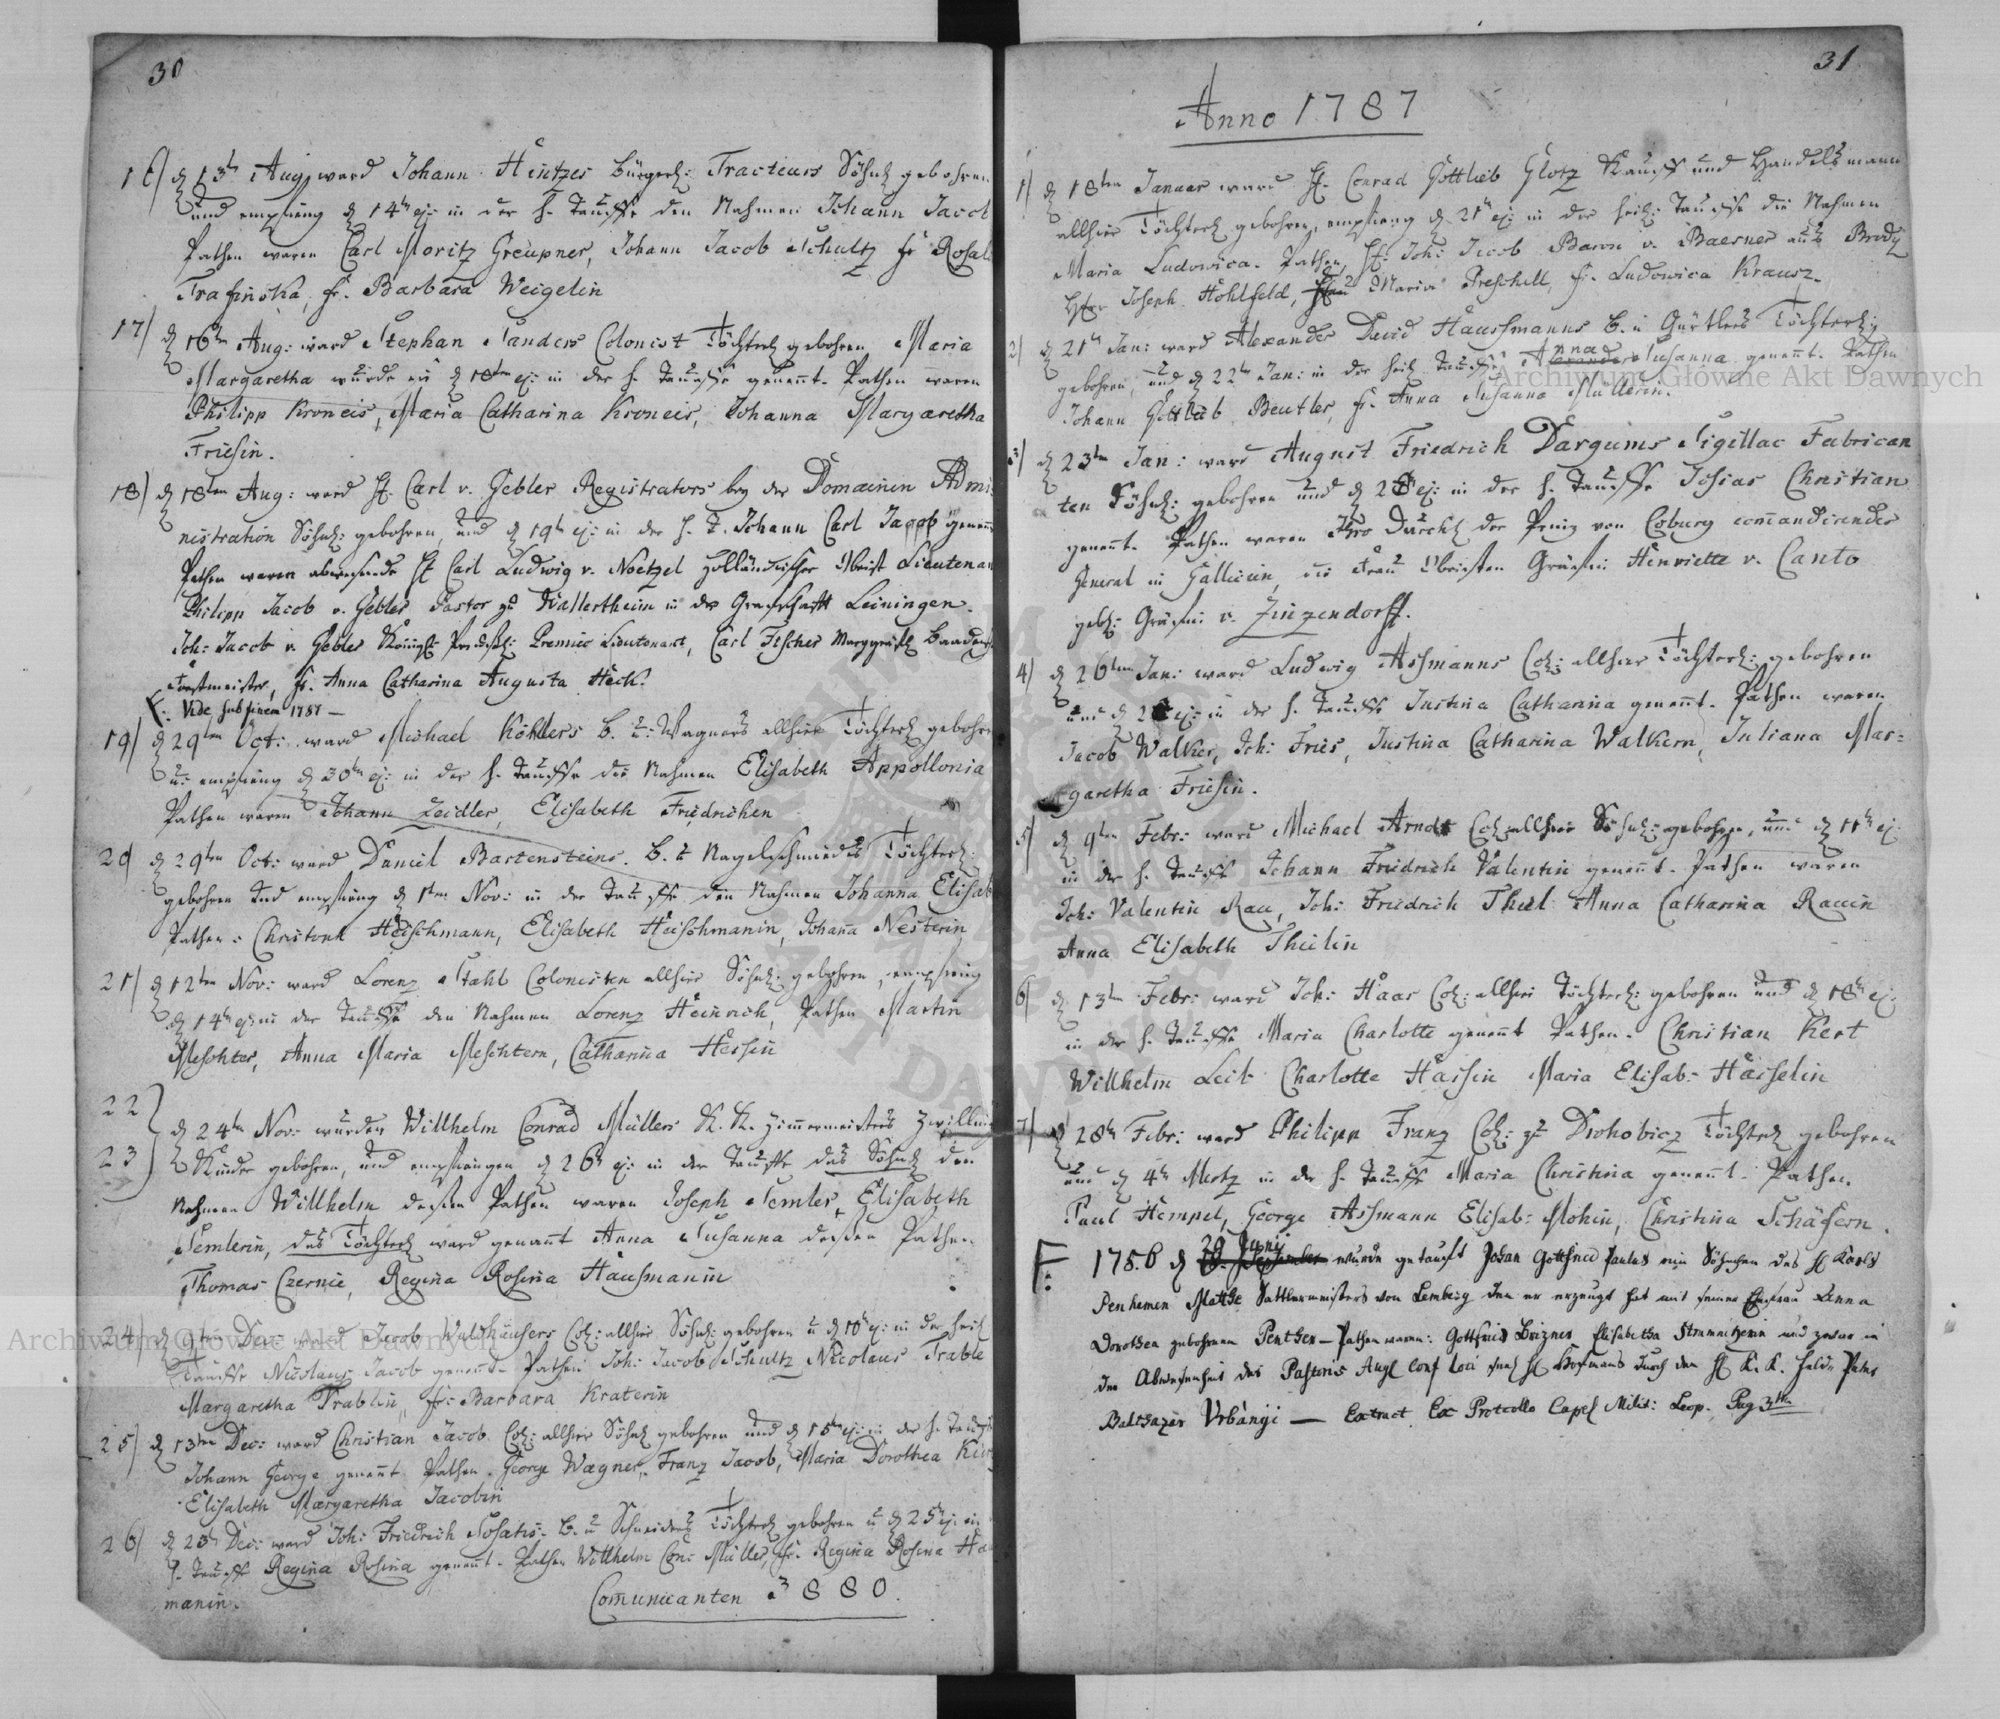 30
16) d 13ten Aug. ward Johann Heintzes Bürgerl: Tracteurs Söhnl. gebohren
und empfieng d 14ten ej: in der h. Tauffe den Nahmen Johann Jacob
Pathen waren Carl Moritz Greupner, Johann Jacob Schultz fr Rosal
Trafinska, fr. Barbara Weigelin
17) d 16ten Aug: ward Stephan Sanders Colonist Töchterl gebohren Maria
Margaretha wurde sie d 18ten ej: in der h. Tauffe genennt. Pathen waren
Philipp Kroneis, Maria Catharina Kroneis, Johanna Margaretha
Friesin.
18) d 18ten Aug: ward H. Carl v. Gebler Registrators bey der Domainen Admi
nistration Söhnl: gebohren, und d 19ten ej: in der h. T. Johann Carl Jacob genennt
Pathen waren abwesende H Carl Ludwig v. Noetzel Holländischer Obrist Lieutenan
Philipp Jacob v. Gebler Pastor zu Wallertheim in der Grafschaft Leiningen.
Joh: Jacob v. Gebler Königl: Preußl: Premier Lieutenant, Carl Fischer Marggräfl Baaden
Forstmeister, fr. Anna Catharina Augusta Heck.
F: Vide sub finem 1787 —
19) d 29ten Oct: ward Michael Köhlers B. u: Wagners allhier Töchterl gebohre
u: empfieng d 30ten ej: in der h. Tauffe die Nahmen Elisabeth Appollonia
Pathen waren Johann Zeidler, Elisabeth Friedrichen
20 d 29ten Oct: ward Daniel Bartensteins. B. u Nagelschmieds Töchterl:
gebohren und empfieng d 1ten Nov: in der Tauffe den Nahmen Johanna Elisab
Pathen: Heischmann, Elisabeth Heischmanin, Johana Nesterin
21) d 12ten Nov: ward Lorenz Stahl Colonisten allhier Söhnl: gebohren, empfieng
d 14ten ej: in der Tauffe den Nahmen Lorenz Heinrich, Pathen Martin
Meschter, Anna Maria Meschtern, Catharina Hessin
22
d 24ten Nov: wurden Willhelm Conrad Müllers K. K. Zimmermeisters Zwilling
23 Kinder gebohren, und empfiengen d 26ten ej: in der Tauffe das Söhnl den
Nahmen Willhelm dessen Pathen waren Joseph Semler, Elisabeth
Semlerin, das Töchterl ward genannt Anna Susanna dessen Pathen
Thomas Czernie, Regina Rosina Hausmanin
24) d 9ten Dec: ward Jacob Waldhäusers Col: allhier Söhnl: gebohren u d 10ten ej: in der heil
Tauffe Nicolaus Jacob genennt. Pathen: Joh: Jacob Schultz Nicolaus Trable
Margaretha Trablin, fr: Barbara Kraterin
25) d 13ten Dec: ward Christian Jacob Col: allhier Söhnl gebohren und d 15ten ej: in der h. Tauffe
Johann George genennt Pathen. George Wagner, Franz Jacob, Maria Dorothea
Elisabeth Margaretha Jacobin
26) d 23ten Dec: ward Joh: Friedrich B. u Schneiders Töchterl gebohren u d 25ten ej: in
h. Tauff Regina Rosina genennt. Pathen Willhelm Con: Müller, fr. Regina Rosina Ha
manin.
Comunicanten 880.
31
Anno 1787
1) d 18ten Januar ward H. Conrad Gottlieb Glotz Kauff und Handelsmann
allhier Töchterl gebohren, empfieng d 21ten ej: in der heil: Tauffe die Nahmen
Maria Ludowica. Pathen, H: Joh: Jacob Baron v. Baerner aus Brody
Herr Joseph Hohlfeld, Maria Preschell, fr. Ludowica Krausz.
2) d 21ten Jan: ward Alexander David Haussmanns B. u Gürtlers Töchterl:
gebohren, und d 22ten Jan: in der heil Tauffe Anna Susanna genennt. Pathen
Johann Gottlieb Beutler, fr. Anna Susanna Müllerin.
3) d 23ten Jan: ward August Friedrich Dargums Sigillac Fabrican
ten Söhnl: gebohren und d ej: in der h. Tauffe Josias Christian
genennt. Pathen waren Ihro Durchl der Prinz von Coburg comandirender
General in Gallicien, die Frau Obristen Gräfin Henriette v. Canto
gebl: Gräfin v. Zinzendorff.
4) d 26ten Jan: ward Ludwig Assmanns Col: allhier Töchterl: gebohren
und d ej: in der h. Tauffe Justina Catharina genennt. Pathen waren
Jacob Walker, Joh: Fries, Justina Catharina Walkern, Juliana Mar=
garetha Friesin.
5) d 9ten Febr: ward Michael Arndt Col: allhier Söhnl: gebohren, und d 11ten ej:
in der h. Tauff Johann Friedrich Valentin genennt. Pathen waren
Joh: Valentin Rau, Joh: Friedrich Theil Anna Catharina Rauin
Anna Elisabeth Theilin
6) d 13ten Febr: ward Joh: Haas Col: allhier Töchterl: gebohren und d 18ten ej:
in der h. Tauffe Maria Charlotte genennt Pathen. Christian Kert
Willhelm Leib Charlotte Hassin Maria Elisab: Hasselin
7) d 28ten Febr: ward Philipp Franz Col: zu Drohobicz Töchterl gebohren
und d 4ten Mertz in der h. Tauff Maria Christina genennt. Pathen
Paul Hempel, George Assmann Elisab: Mohin, Christina Schäfern.
F: 1786 d 29 Junij wurde getauft Johan Gottfried Paulus ein Söhnchen des H Karls
Matthe Sattlermeisters von Lemberg den er erzeugt hat mit seiner Ehefrau Anna
Dorothea gebohrnen Penther — Pathen waren: Gottfried Brizner Elisabetha und zwar in
der Abwesenheit des Pastoris Augl Conf Loci H Hofmans durch den H K. K. Feld Pater
Balthazar Urbányi — Extract Ex Protcollo Capel Milit: Leop. Pag 3tia
Archiwum Główne Akt Dawnych
Archiwum Główne Akt Dawnych